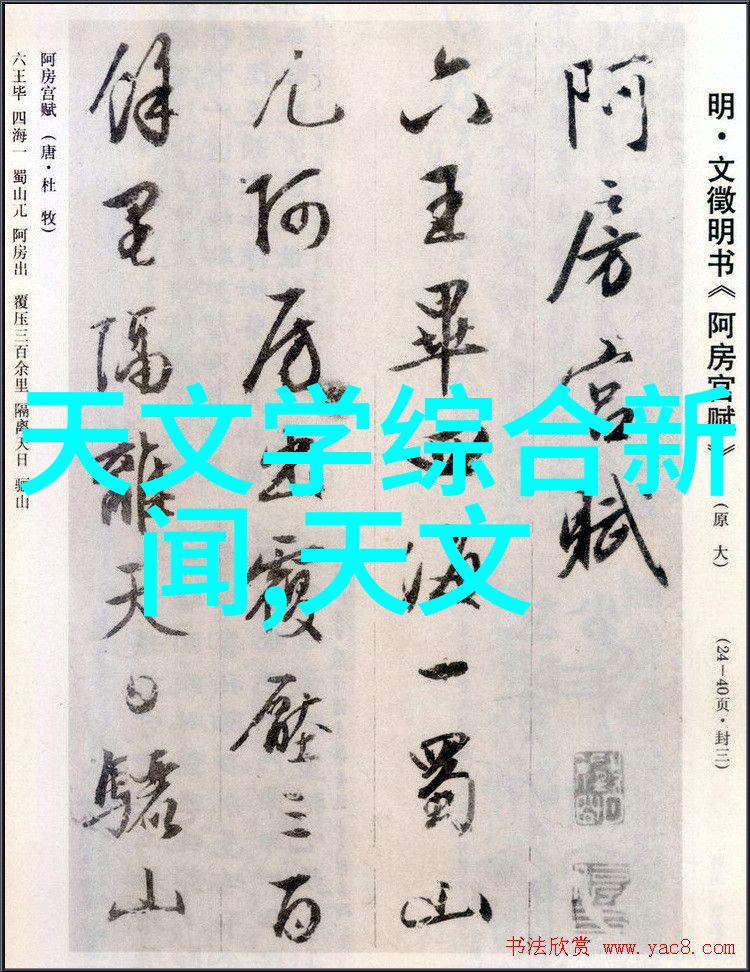 明·文徵明书《阿房宫赋》(原大) (24—40页·封三)
阿房宫赋
六王畢四海一蜀山
兀阿房出覆壓三百
餘里隔離天日驪山
阿房宫赋(唐·杜牧)
六王毕 四海一 蜀山兀 阿房出 覆压三百余里 隔离天日 骊山
天文学综合新
闻,天文
书法欣赏 www.yac8.com